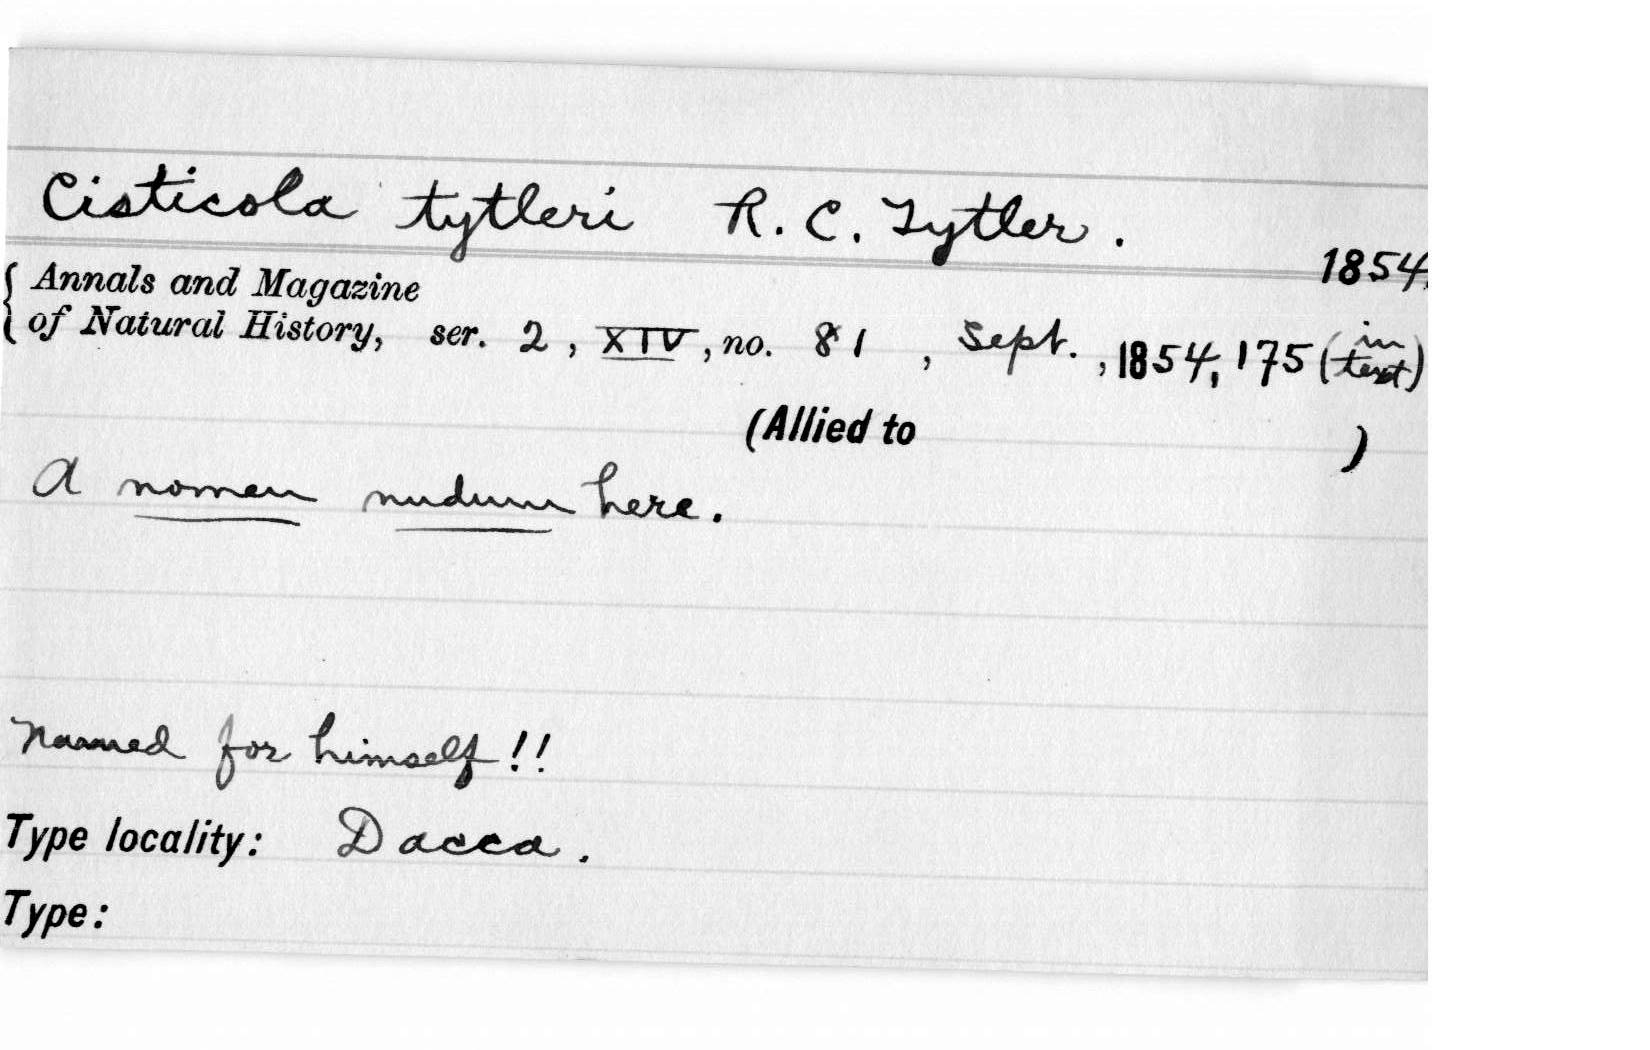 Cisticola tytleri R. C. Tytler.
1854.
Annals and Magazine
of Natural History, ser. 2, XIV, no. 81, Sept., 1854, 175 (in text)
(Allied to )
A nomen nudum here.
Named for himself!!
Type locality: Dacca.
Type: